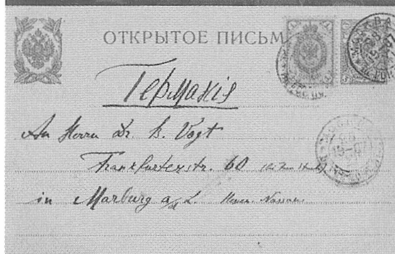 ОТКРЫТОЕ ПИСЬМО
Германія
An Herrn Dr. K. Vogt
Frankfurterstr. 60
in Marburg a/L. Hessen Nassau